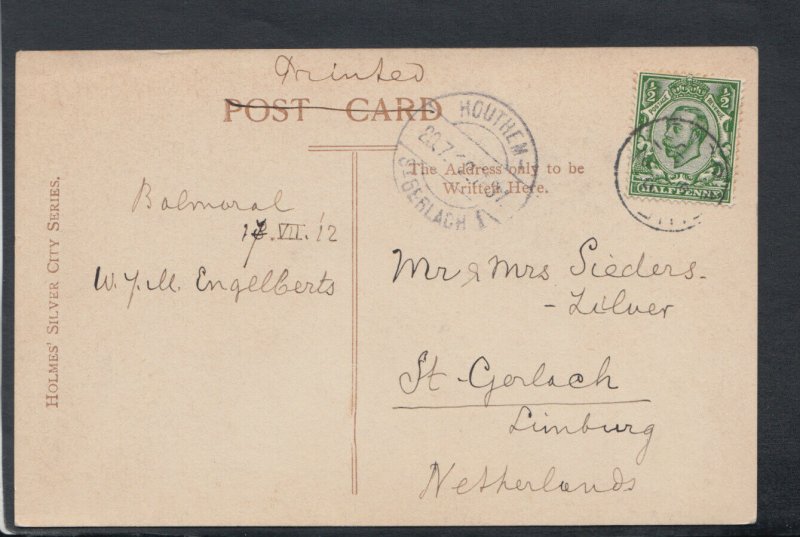 Printed
POST CARD
HOUTHEM-
ST GERLACH
The Address only to be
Written Here.
½ ½
HALFPENNY
HOLMES' SILVER CITY SERIES.
Balmoral
VII. '12
W.J.M. Engelberts
Mr & Mrs Sieders-
-Lilver
St-Gerlach
Limburg
Netherlands